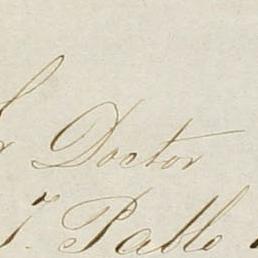 Doctor
Pablo